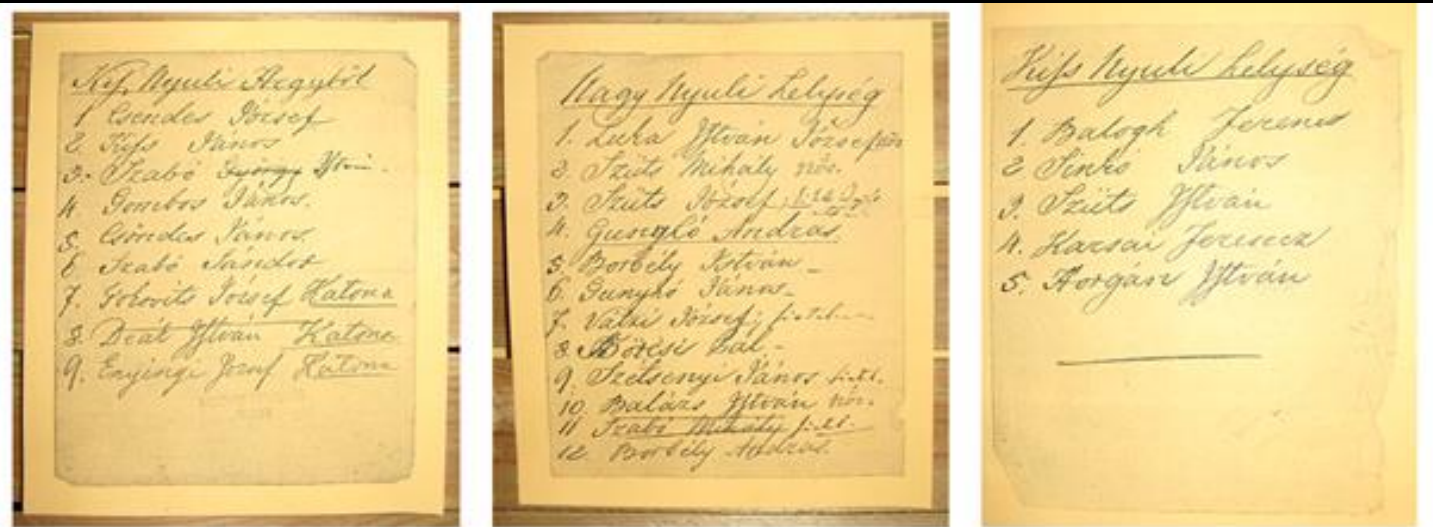 Kis Nyuli Hegyből
1 Csendes József
2 Kiss János
3. Szabó György Istvá.
4 Gombos János.
5. Csöndes János.
6 Szabó Sándor
7. József Katona
8. Deák István Katona
9. Enyingi József Katona
Nagy Nyuli Helység
1. Luka István József
2. Szüts Mihály nős.
3. Szüts József
4. Gungló András
5. Borbély István
6. János
7. József
8
9. Szétsenyi János
10. Balázs István nős.
11 Szabó Mihály
12. Borbély András.
Kiss Nyuli Helység
1. Balogh Ferencz
2 Sinkó János
3. Szüts István
4. Karsai Ferencz
5. Horgán István